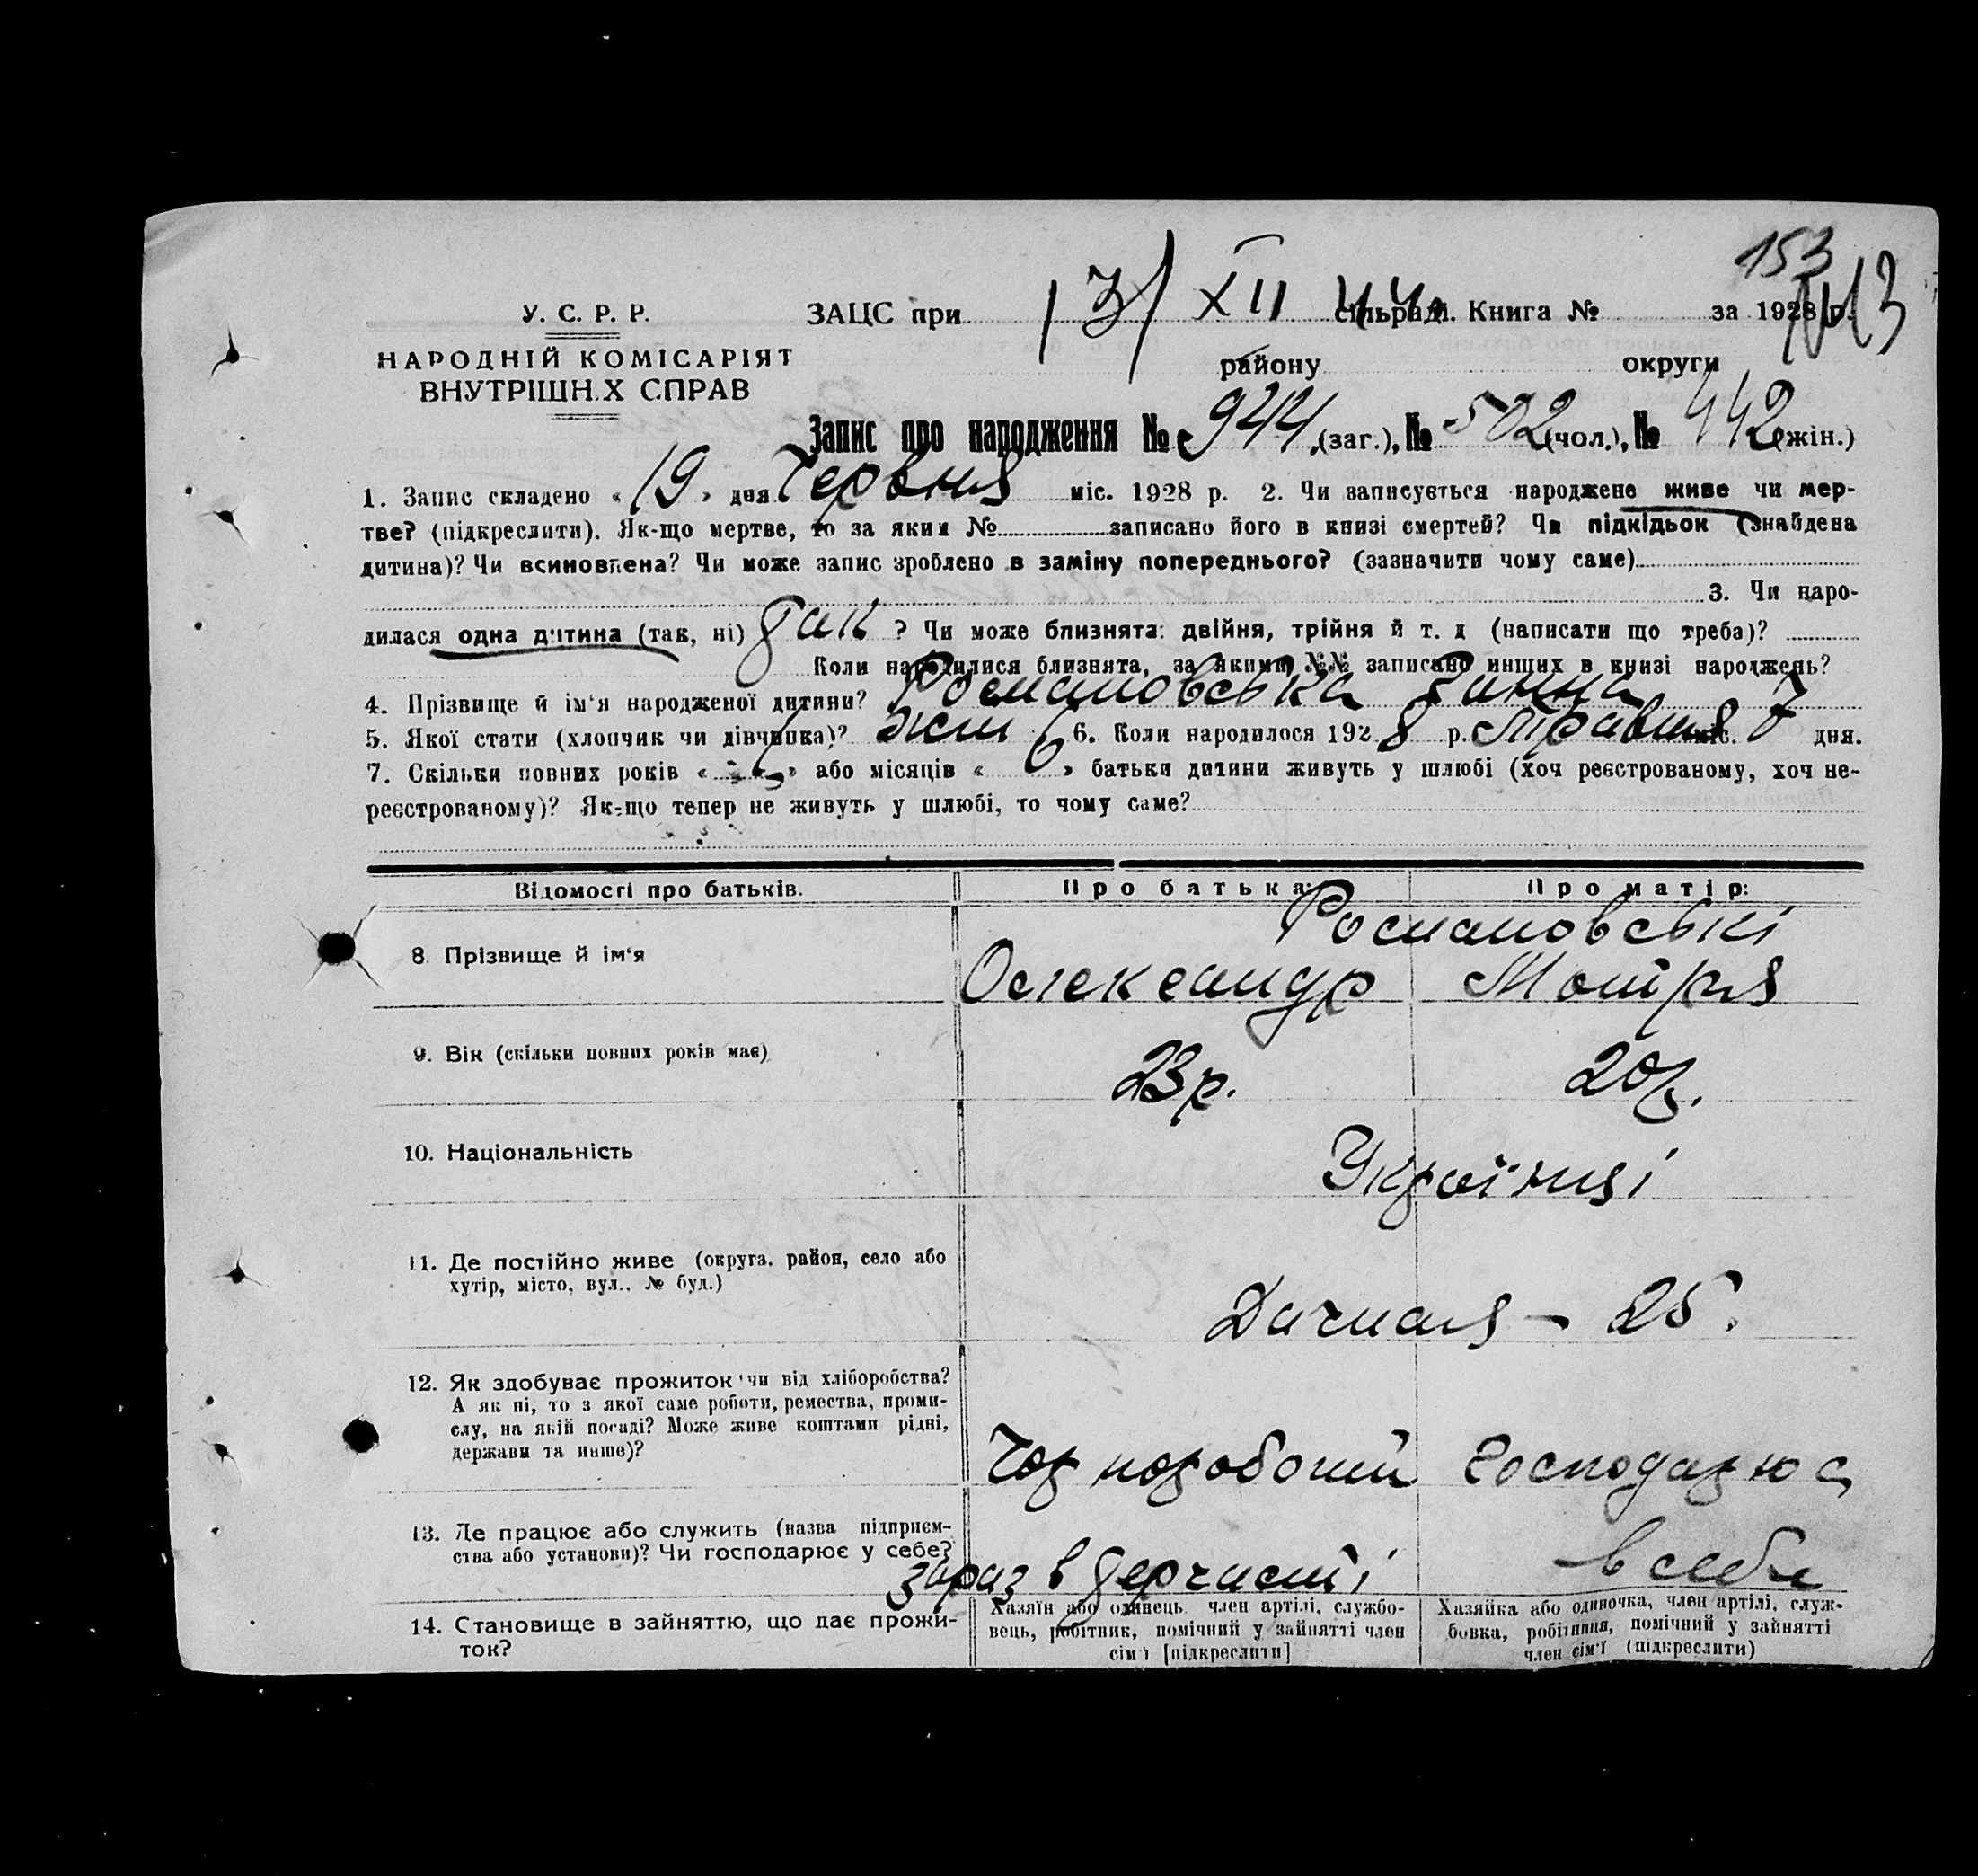 153
13/XII 44.
143
У. С. Р. Р.
ЗАЦС при сільраді. Книга № за 1928 р.
НАРОДНІЙ КОМІСАРІЯТ
району округи
ВНУТРІШН.Х СПРАВ
Запис про народження № 944 (заг.), № 502 (чол.), № 442 (жін.)
1. Запис складено « 19 » дня Червня міс. 1928 р. 2. Чи записується народжене живе чи мер-
тве? (підкреслити). Як-що мертве, то за яким № записано його в книзі смертей? Чи підкідьок (знайдена
дитина)? Чи всиновлена? Чи може запис зроблено в заміну попереднього? (зазначити чому саме)
3. Чи наро-
дилася одна дитина (так, ні) Так ? Чи може близнята: двійня, трійня й т. д (написати що треба)?
Коли народилися близнята, за якими №№ записано инших в книзі народжень?
4. Прізвище й ім'я народженої дитини? Росмановська
5. Якої стати (хлопчик чи дівчинка)? жін 6. Коли народилося 1928 р. Травня міс. 7 дня.
7. Скільки повних років « » або місяців « 6 » батьки дитини живуть у шлюбі (хоч реєстрованому, хоч не-
реєстрованому)? Як-що тепер не живуть у шлюбі, то чому саме?
Відомості про батьків. Про батька: Про матір:
Росмановські
8. Прізвище й ім'я Олександр Мотря
9. Вік (скільки повних років має) 23 р. 20 р.
10. Національність Українці
11. Де постійно живе (округа, район, село або
хутір, місто, вул., № буд.)
Дачная – 25.
12. Як здобуває прожиток чи від хліборобства?
А як ні, то з якої саме роботи, ремества, проми-
слу, на якій посаді? Може живе коштами рідні,
держави та инше)?
Чорноробочий господарює
13. Де працює або служить (назва підприєм-
ства або установи)? Чи господарює у себе?
зараз в в себе
14. Становище в зайняттю, що дає прожи-
ток?
Хазяїн або одинець член артілі, службо-
вець, робітник, помічний у зайнятті член
сім'ї [підкреслити]
Хазяйка або одиночка, член артілі, служ-
бовка, робітниця, помічний у зайнятті
член сім'ї (підкреслити)